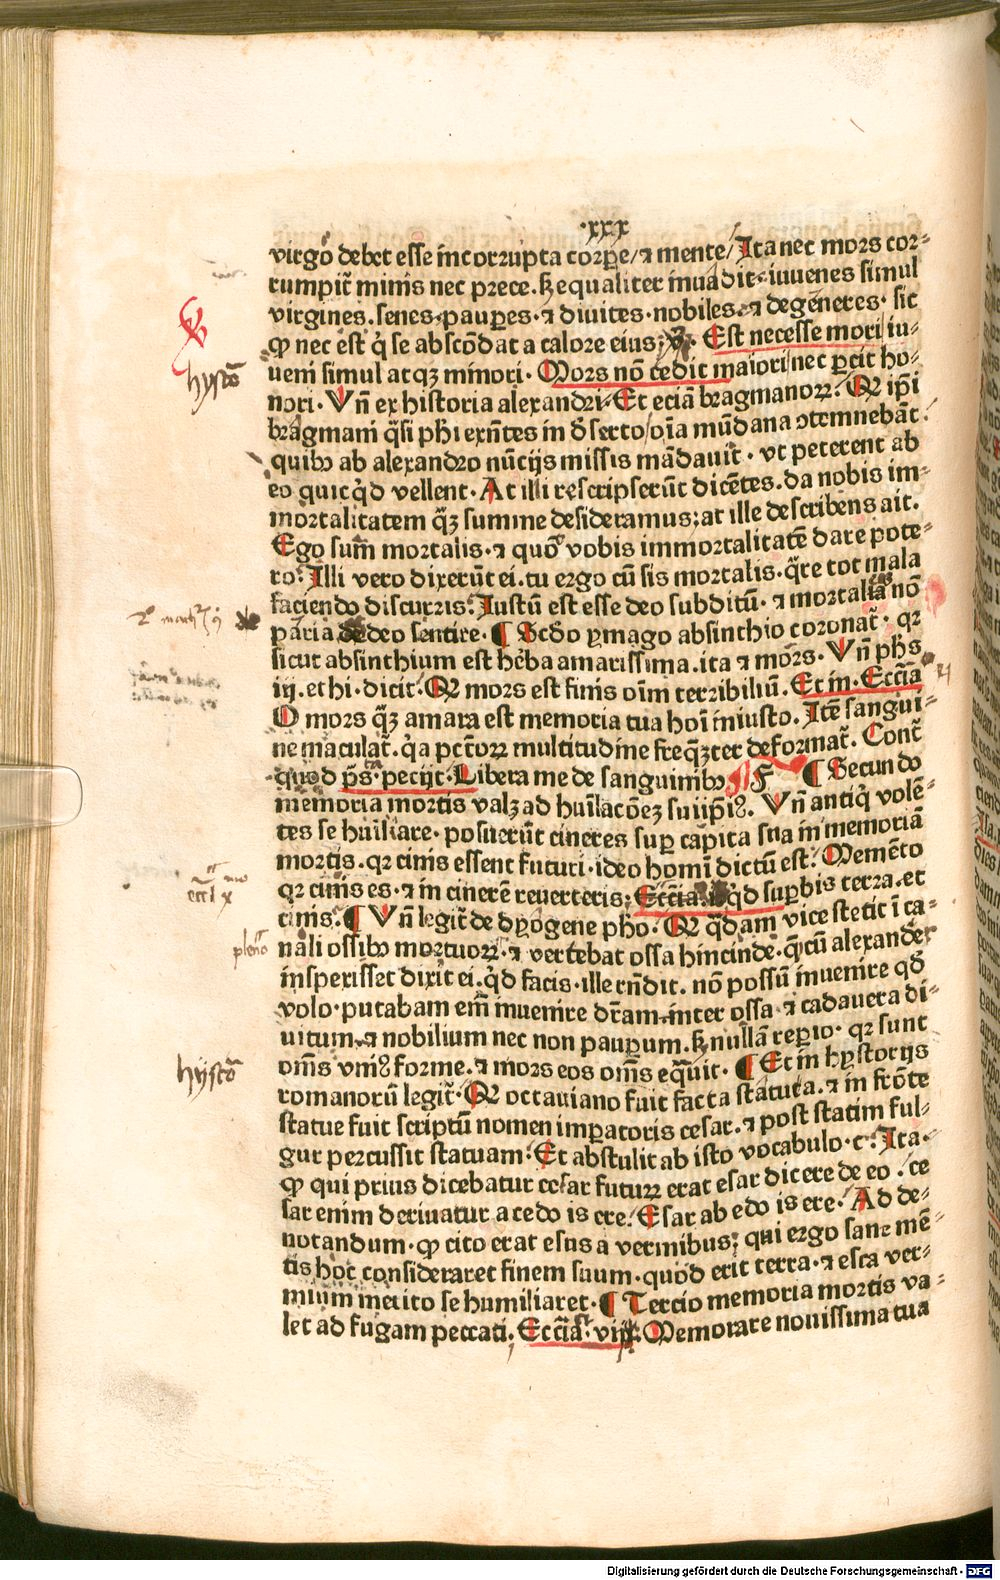 ·xxx
virgo debet esse incorrupta corpꝑe/⁊ mente/Ita nec mors cor⸗
rumpit̃ minis nec prece.ſꝫ equaliter inuadit iuuenes simul
virgines.senes.paupes.⁊ diuites.nobiles.⁊ degeneres. sic
ꝙ nec est q̇ se abscõdat a calore eius; v. Est necesse mori iu⸗
ueni simul atqꝫ minori. Mors nõ cedit maiori nec ꝑcit ho⸗
nori. Vñ ex historia alexandri. Et eciã bragmanoꝝ. Ꝙ ip̃i
bragmani q̃si ph̃i exñtes in d̃serto/oĩa mũdana ↄtemnebãt.
quibꝰ ab alexandro nũcijs missis mãdauit. vt peterent ab
eo quicq̇d vellent. At illi rescripserũt dicẽtes.da nobis im⸗
mortalitatem q̃ꝫ summe desideramus; at ille describens ait.
Ego sum mortalis.⁊ quõ vobis immortalitatẽ dare pote⸗
ro. Illi vero dixerũt ei.tu ergo cũ sis mortalis.q̃re tot mala
faciendo discurris. Iustũ est esse deo subditũ.⁊ mortalia nõ
paria de deo sentire. ¶ Scđo ymago absinthio coronat̃. qꝛ
sicut absinthium est hẽba amarissima.ita ⁊ mors. Vñ ph̃s
iij.ethi.dicit. Ꝙ mors est finis oĩm terribiliũ. Et in. Ecc̃ia
O mors q̃ꝫ amara est memoria tua hoĩ iniusto. Itẽ sangui⸗
ne maculat̃. q̇a pct̃oꝝ multitudine freq̃ꝫter deformat̃. Cont̃
quod p̃s.pecijt. Libera me de sanguinibꝰ ¶ Secundo
memoria mortis valꝫ ad huĩlacõeꝫ sui ip̃iꝰ. Vñ antiq̇ volẽ⸗
tes se huĩliare. posuerũt cineres sup capita sua in memoriã
mortis. qꝛ cinis essent futuri.ideo homĩ dictũ est. Memẽto
qꝛ cinis es.⁊ in cinerẽ reuerteris; Ecc̃ia. q̇d supbis terra.et
cinis. ¶ Vñ legit̃ de dyogene ph̃o. Ꝙ q̃dam vice stetit ĩ ca⸗
nali ossibꝰ mortuoꝝ.⁊ vertebat ossa hincinde.q̃cũ alexander
insperisset dixit ei.q̇d facis.ille rñdit. nõ possũ inuenire qđ
volo. putabam em̃ inuenire dr̃am inter ossa ⁊ cadauera di⸗
uitum.⁊ nobilium nec non pauꝑum.ſꝫ nullã reperio. qꝛ sunt
om̃s vniꝰ forme.⁊ mors eos om̃s eq̃uit. ¶ Et in hystorijs
romanorũ legit̃. Ꝙ octauiano fuit facta statuta.⁊ in frõte
statue fuit scriptũ nomen imperatoris cesar.⁊ post statim ful⸗
gur percussit statuam. Et abstulit ab isto vocabulo.c. Ita.
ꝙ qui prius dicebatur cesar futuꝝ erat esar dicere de eo. ce
sar enim deriuatur a cedo is ere. Esar ab edo is ere. Ad de⸗
notandum. ꝙ cito erat esus a vermibus; qui ergo sane mẽ⸗
tis hoc consideraret finem suum.quod erit terra.⁊ esca ver⸗
mium merito se humiliaret. ¶ Tercio memoria mortis va⸗
let ad fugam peccati. Ecc̃ia. vij. Memorare nouissima tua
hystõ
hystõ